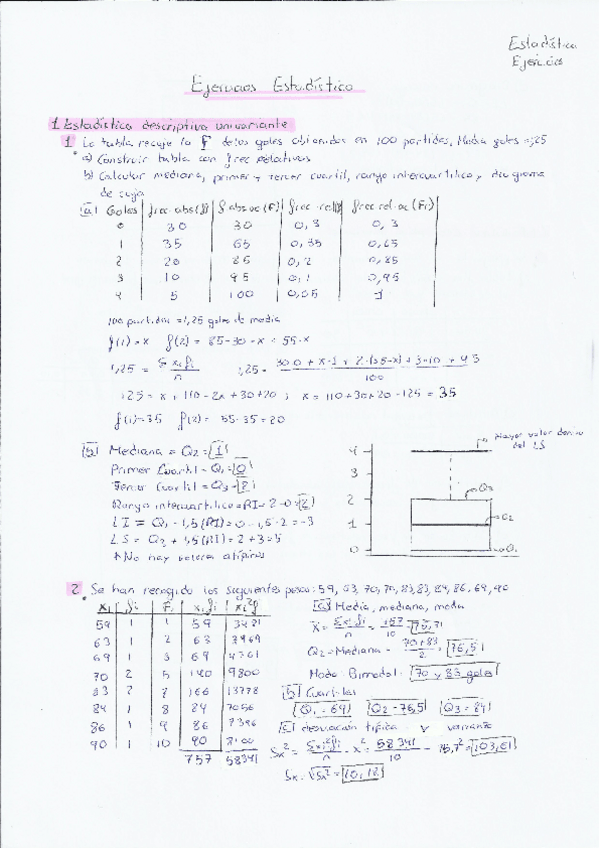 Estadística
Ejercicios
Ejercicios Estadística
1. Estadística descriptiva univariante
1 La tabla recoje la F de los goles obtenidos en 100 partidos, Media goles = 1,25
a) Construir tabla con frec relativas
b) Calcular mediana, primer y tercer cuartil, rango intercuartilico y diagrama
de caja
(a) Goles | frec abs (fi) | f abs ac (Fi) | frec rel (fi) | frec rel ac (Fr)
0 30 30 0,3 0,3
1 35 65 0,35 0,65
2 20 85 0,2 0,85
3 10 95 0,1 0,95
4 5 100 0,05 1
100 partidos = 1,25 goles de media
f(1) = x f(2) = 85-30-x = 55-x
1,25 = Σ xi fi / n 1,25 = 30·0 + x·1 + 2·(55-x) + 3·10 + 4·5 / 100
125 = x + 110 - 2x + 30 + 20 ; x = 110 + 30 + 20 - 125 = 35
f(1) = 35 f(2) = 55-35 = 20
(b) Mediana = Q2 = 1
Primer Cuartil = Q1 = 0
Tercer Cuartil = Q3 = 2
Rango intercuartilico = RI = 2-0 = 2
LI = Q1 - 1,5(RI) = 0 - 1,5·2 = -3
LS = Q3 + 1,5(RI) = 2+3 = 5
* No hay valores atípicos
Mayor valor dentro
del LS
4
3
2
1
0
Q3
Q2
Q1
2 Se han recogido los siguientes pesos: 59, 63, 70, 70, 83, 83, 84, 86, 69, 90
xi | fi | Fi | xi fi | xi² fi
59 1 1 59 3481
63 1 2 63 3969
69 1 3 69 4761
70 2 5 140 9800
83 2 7 166 13778
84 1 8 84 7056
86 1 9 86 7396
90 1 10 90 8100
757 58341
(a) Media, mediana, moda
X = Σ xi fi / n = 757 / 10 = 75,7
Q2 = Mediana = 70+83 / 2 = 76,5
Moda: Bimodal: 70 y 83 goles
(b) Cuartiles
Q1 = 69 Q2 = 76,5 Q3 = 84
(c) desviación típica y varianza
Sx² = Σ xi² fi / n - x² = 58341 / 10 - 75,7² = 103,61
Sx = √Sx² = 10,18